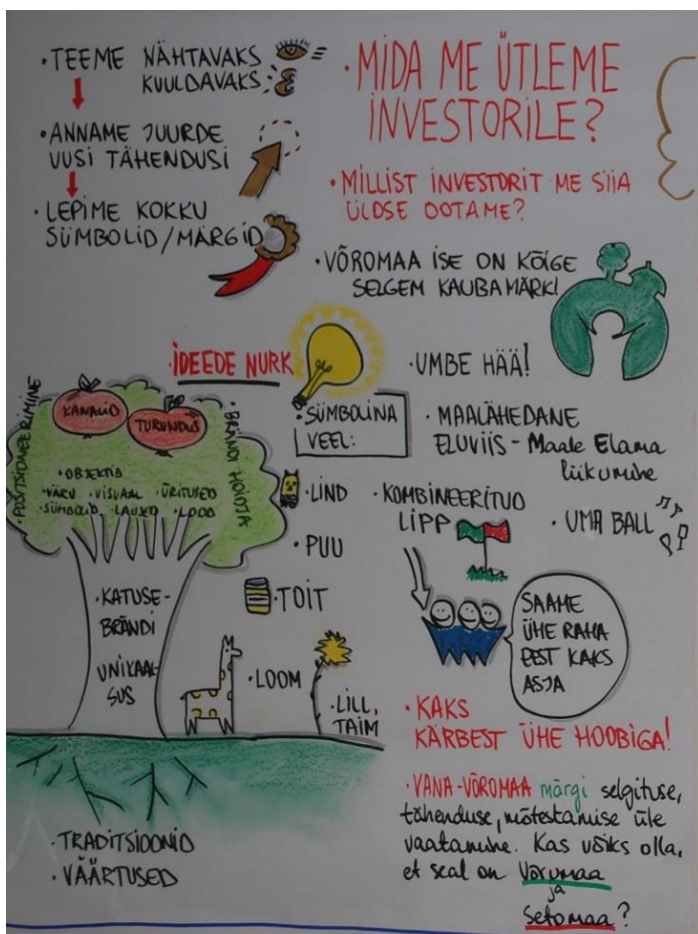 · TEEME NÄHTAVAKS
KUULDAVAKS
· ANNAME JUURDE
UUSI TÄHENDUSI
· LEPIME KOKKU
SÜMBOLID/MÄRGID
· MIDA ME ÜTLEME
INVESTORILE?
· MILLIST INVESTORIT ME SIIA
ÜLDSE OOTAME?
· VÕROMAA ISE ON KÕIGE
SELGEM KAUBAMÄRK!
· IDEEDE NURK
· UMBE HÄÄ!
· SÜMBOLINA
VEEL:
· MAALÄHEDANE
ELUVIIS - Maale Elama
liikumine
· LIND
· PUU
· TOIT
· LOOM
· LILL,
TAIM
· KOMBINEERITUD
LIPP
· UMA BALL
SAAME
ÜHE RAHA
EEST KAKS
ASJA
· KAKS
KÄRBEST ÜHE HOOBIGA!
· VANA-VÕROMAA märgi selgituse,
tähenduse, mõtestamise üle
vaatamine. Kas võiks olla,
et seal on Võrumaa
ja
Setomaa?
· POSITSIONEERIMINE
KANALID
TURUNDUS
· BRÄNDI HOIDJA
· OBJEKTID
· VÄRV · VISUAAL · ÜRITUSED
· SÜMBOLID · LAUSED · LOOD
· KATUSE-
BRÄNDI
UNIKAAL-
SUS
· TRADITSIOONID
· VÄÄRTUSED